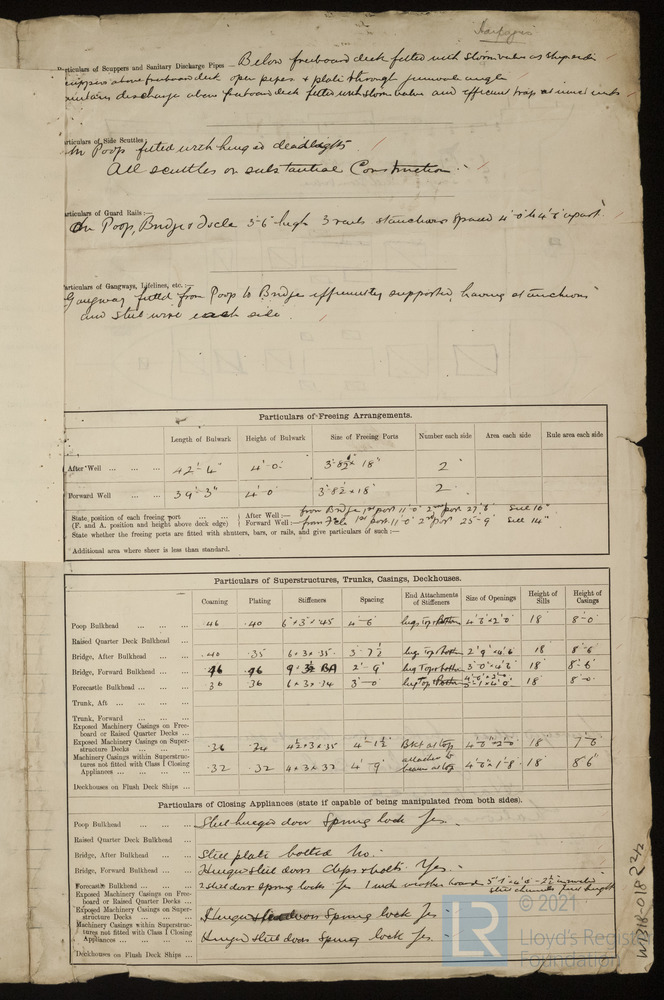 Particulars of Scuppers and Sanitary Discharge Pipes Below freeboard deck fitted with storm valves at ship's side
scuppers above freeboard deck open pipes & plate through gunwale angle
sanitary discharge above freeboard deck fitted with storm valve and efficient trap at inner ends
Particulars of Side Scuttles
In Poop fitted with hinged deadlights.
All scuttles of substantial Construction.
Particulars of Guard Rails:—
On Poop, Bridge & Focle 3'-6" high 3 rails stanchions spaced 4'-0" to 4'-6" apart.
Particulars of Gangways, Lifelines, etc.:—
Gangway fitted from Poop to Bridge efficiently supported, having stanchions
and steel wire each side.
Particulars of Freeing Arrangements.
Length of Bulwark Height of Bulwark Size of Freeing Ports Number each side Area each side Rule area each side
After Well ... 42'-4" 4'-0" 3'-8½ × 18" 2
Forward Well 39'-3" 4'-0 3'-8½ × 18" 2
State position of each freeing port ... After Well:— from Bridge 1st port 11'-0" 2nd port 27'-6" Sill 16"
(F. and A. position and height above deck edge) Forward Well:— from Fcle 1st port 11'-0" 2nd port 25'-9" Sill 14"
State whether the freeing ports are fitted with shutters, bars, or rails, and give particulars of such:—
Additional area where sheer is less than standard.
Particulars of Superstructures, Trunks, Casings, Deckhouses.
Coaming Plating Stiffeners Spacing End Attachments of Stiffeners Size of Openings Height of Sills Height of Casings
Poop Bulkhead ... .46 .40 6 × 3 × .45 4'-6" lug Top & Bottom 4'6" × 2'0" 18" 8'-0"
Raised Quarter Deck Bulkhead ...
Bridge, After Bulkhead ... .40 .35 6 × 3 × .35 3'-7½ lug Top & both 2'9" × 4'6" 18" 8'-6"
Bridge, Forward Bulkhead ... .46 .46 9 × 3½ BA 2'-9" lug Top & both 3'0" × 4'6" 18" 8'-6"
Forecastle Bulkhead ... .36 .36 6 × 3 × .34 3'-0 lug Top & Bottom 18 8'-0
Trunk, Aft ...
Trunk, Forward ...
Exposed Machinery Casings on Freeboard or Raised Quarter Decks ...
Exposed Machinery Casings on Superstructure Decks ... .36 .34 4½ × 3 × .35 4'-1½" Bkt at top 4'6" × 2'0" 18 7'-6"
Machinery Casings within Superstructures not fitted with Class 1 Closing Appliances ... .32 .32 4 × 3 × .32 4'-9" attached to beam at top 4'6" × 1'8 18 8'6"
Deckhouses on Flush Deck Ships ...
Particulars of Closing Appliances (state if capable of being manipulated from both sides).
Poop Bulkhead ... Steel hinged door Spring lock Yes.
Raised Quarter Deck Bulkhead ...
Bridge, After Bulkhead ... Steel plate bolted No.
Bridge, Forward Bulkhead ... Hinged steel doors clips & bolts Yes.
Forecastle Bulkhead ... 2 steel door spring locks Yes 1 with weather boards steel channels full height
Exposed Machinery Casings on Freeboard or Raised Quarter Decks ...
Exposed Machinery Casings on Superstructure Decks ... Hinged steel doors Spring lock Yes.
Machinery Casings within Superstructures not fitted with Class 1 Closing Appliances ... Hinged steel doors Spring lock Yes.
Deckhouses on Flush Deck Ships ...
W1318-018 2/2
© 2021
LR
Lloyd's Register
Foundation